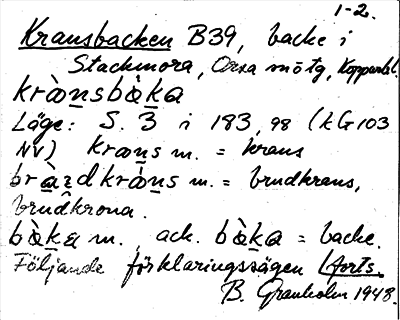 1-2.
Kransbacken B39, backe i
Stackmora, Orsa sn ö tg, Kopparbl.
kràn̲sbàk̲a
Läge: S. 3 i 183, 98 (kG103
NV) krans m. = krans
bràzdkràn̲s m. = brudkrans,
brudkrona.
bàk̲a m. ack. bàk̲a = backe.
Följande förklaringssägen (forts.
B. Granholm 1948.